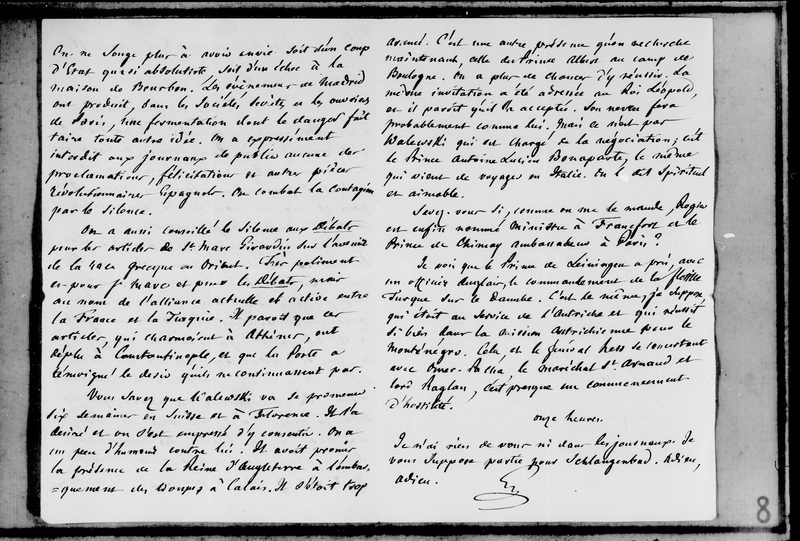 On ne songe plus à avoir envie soit d'un coup
d'Etat quasi absolutiste, soit d'un échec à la
maison de Bourbon. Les événemens de Madrid
ont produit, dans les Sociétés secrètes, et les ouvriers
de Paris, une fermentation dont le danger fait
taire toute autre idée. On a expressément
interdit aux journaux de publier aucune des
proclamations, félicitations et autres pièces
révolutionnaires Espagnoles. On combat la contagion
par le silence.
On a aussi conseillé le silence aux Débats
pour les articles de St Marc Girardin sur l'avenir
de la race grecque en Orient. Très poliment
et pour St Marc et pour les Débats, mais
au nom de l'alliance actuelle et active entre
la France et la Turquie. Il paroît que ces
articles, qui charmoient à Athènes, ont
déplu à Constantinople, et que la Porte a
témoigné le désir qu'ils ne continuassent pas.
Vous savez que Walewski va se promener
six semaines en Suisse et à Florence. Il l'a
desiré et on s'est empressé d'y consentir. On a
un peu d'humeur contre lui. Il avoit promis
la présence de la Reine d'Angleterre à l'embar-
=quement des troupes à Calais. Il s'étoit trop
avancé. C'est une autre présence qu'on recherche
maintenant, celle du Prince Albert au camp de
Boulogne. On a plus de chances d'y réussir. La
même invitation a été adressée au Roi Léopold,
et il paroît qu'il l'a acceptée. Son neveu fera
probablement comme lui. Mais ce n'est pas
Walewski qui est chargé de la négociation; c'est
le Prince Antoine Lucien Bonaparte, le même
qui vient de voyager en Italie. On le dit spirituel
et aimable.
Savez-vous si, comme on me le mande, Rogier
est enfin nommé Ministre à Francfort et le
Prince de Chimay ambassadeur à Paris?
Je vois que le Prince de Leiningen a pris, avec
un officier anglais, le commandement de la flottille
Turque sur le Danube. C'est le même, je suppose,
qui était au service de l'Autriche et qui réussit
si bien dans la mission Autrichienne pour le
Monténégro. Cela, et le général Hess se concertant
avec Omer-Pacha, le maréchal St Arnaud et
lord Raglan, c'est presque un commencement
d'hostilité.
onze heures.
Je n'ai rien de vous ni dans les journaux. Je
vous suppose partie pour Schlangenbad. Adieu,
adieu.
8